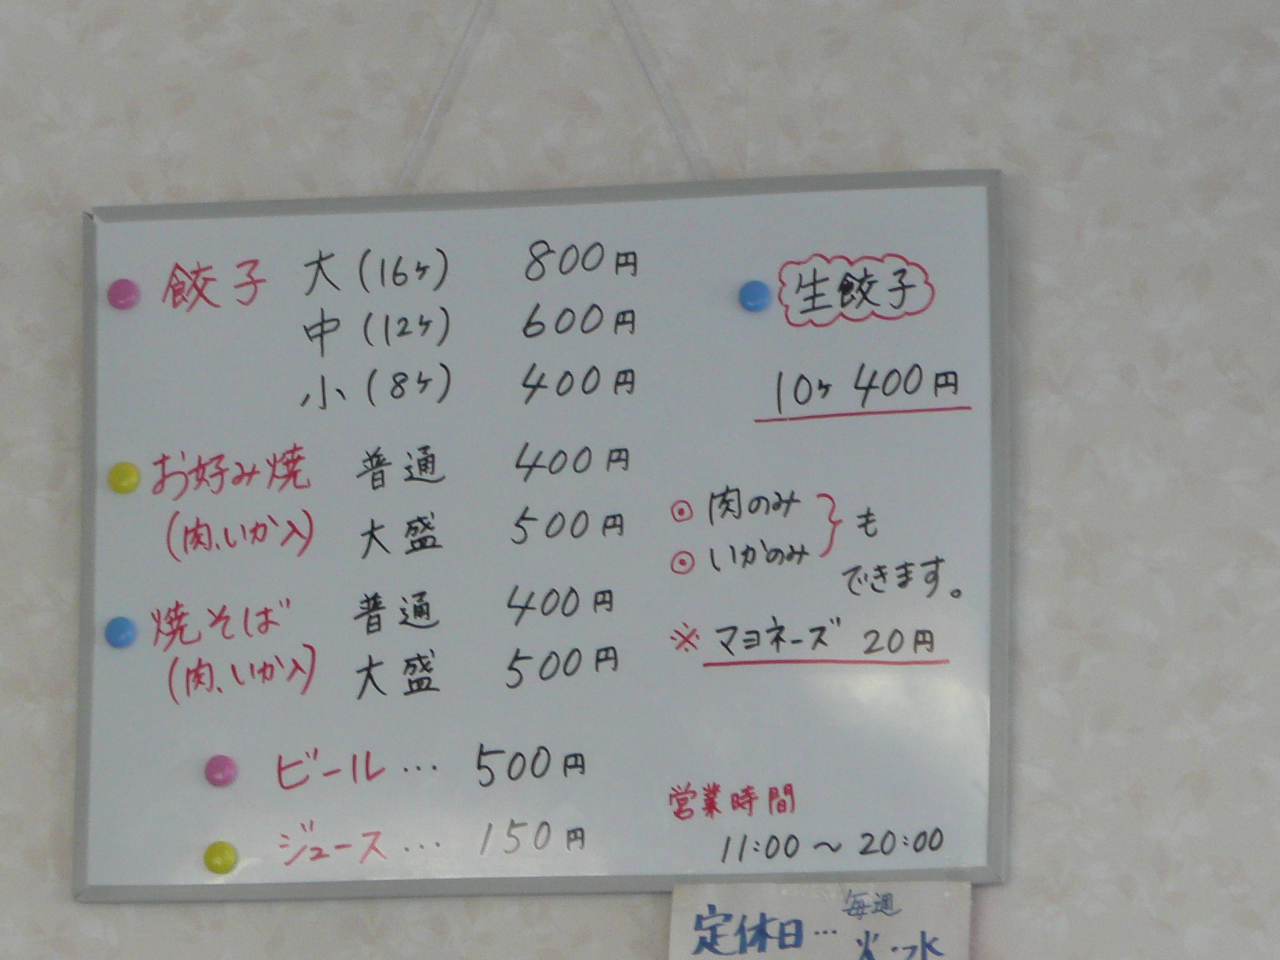 餃子 大(16ヶ) 800円
中(12ヶ) 600円
小(8ヶ) 400円
お好み焼 普通 400円
(肉、いか入) 大盛 500円
焼そば 普通 400円
(肉、いか入) 大盛 500円
ビール… 500円
ジュース… 150円
生餃子
10ヶ 400円
◎ 肉のみ
◎ いかのみ } も
できます。
※ マヨネーズ 20円
営業時間
11:00〜20:00
定休日… 毎週
火・水